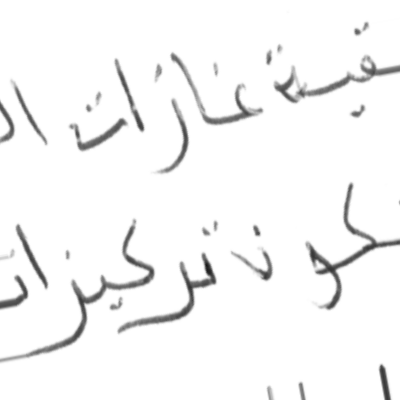 بقية غازات ال
تكون تركيزات